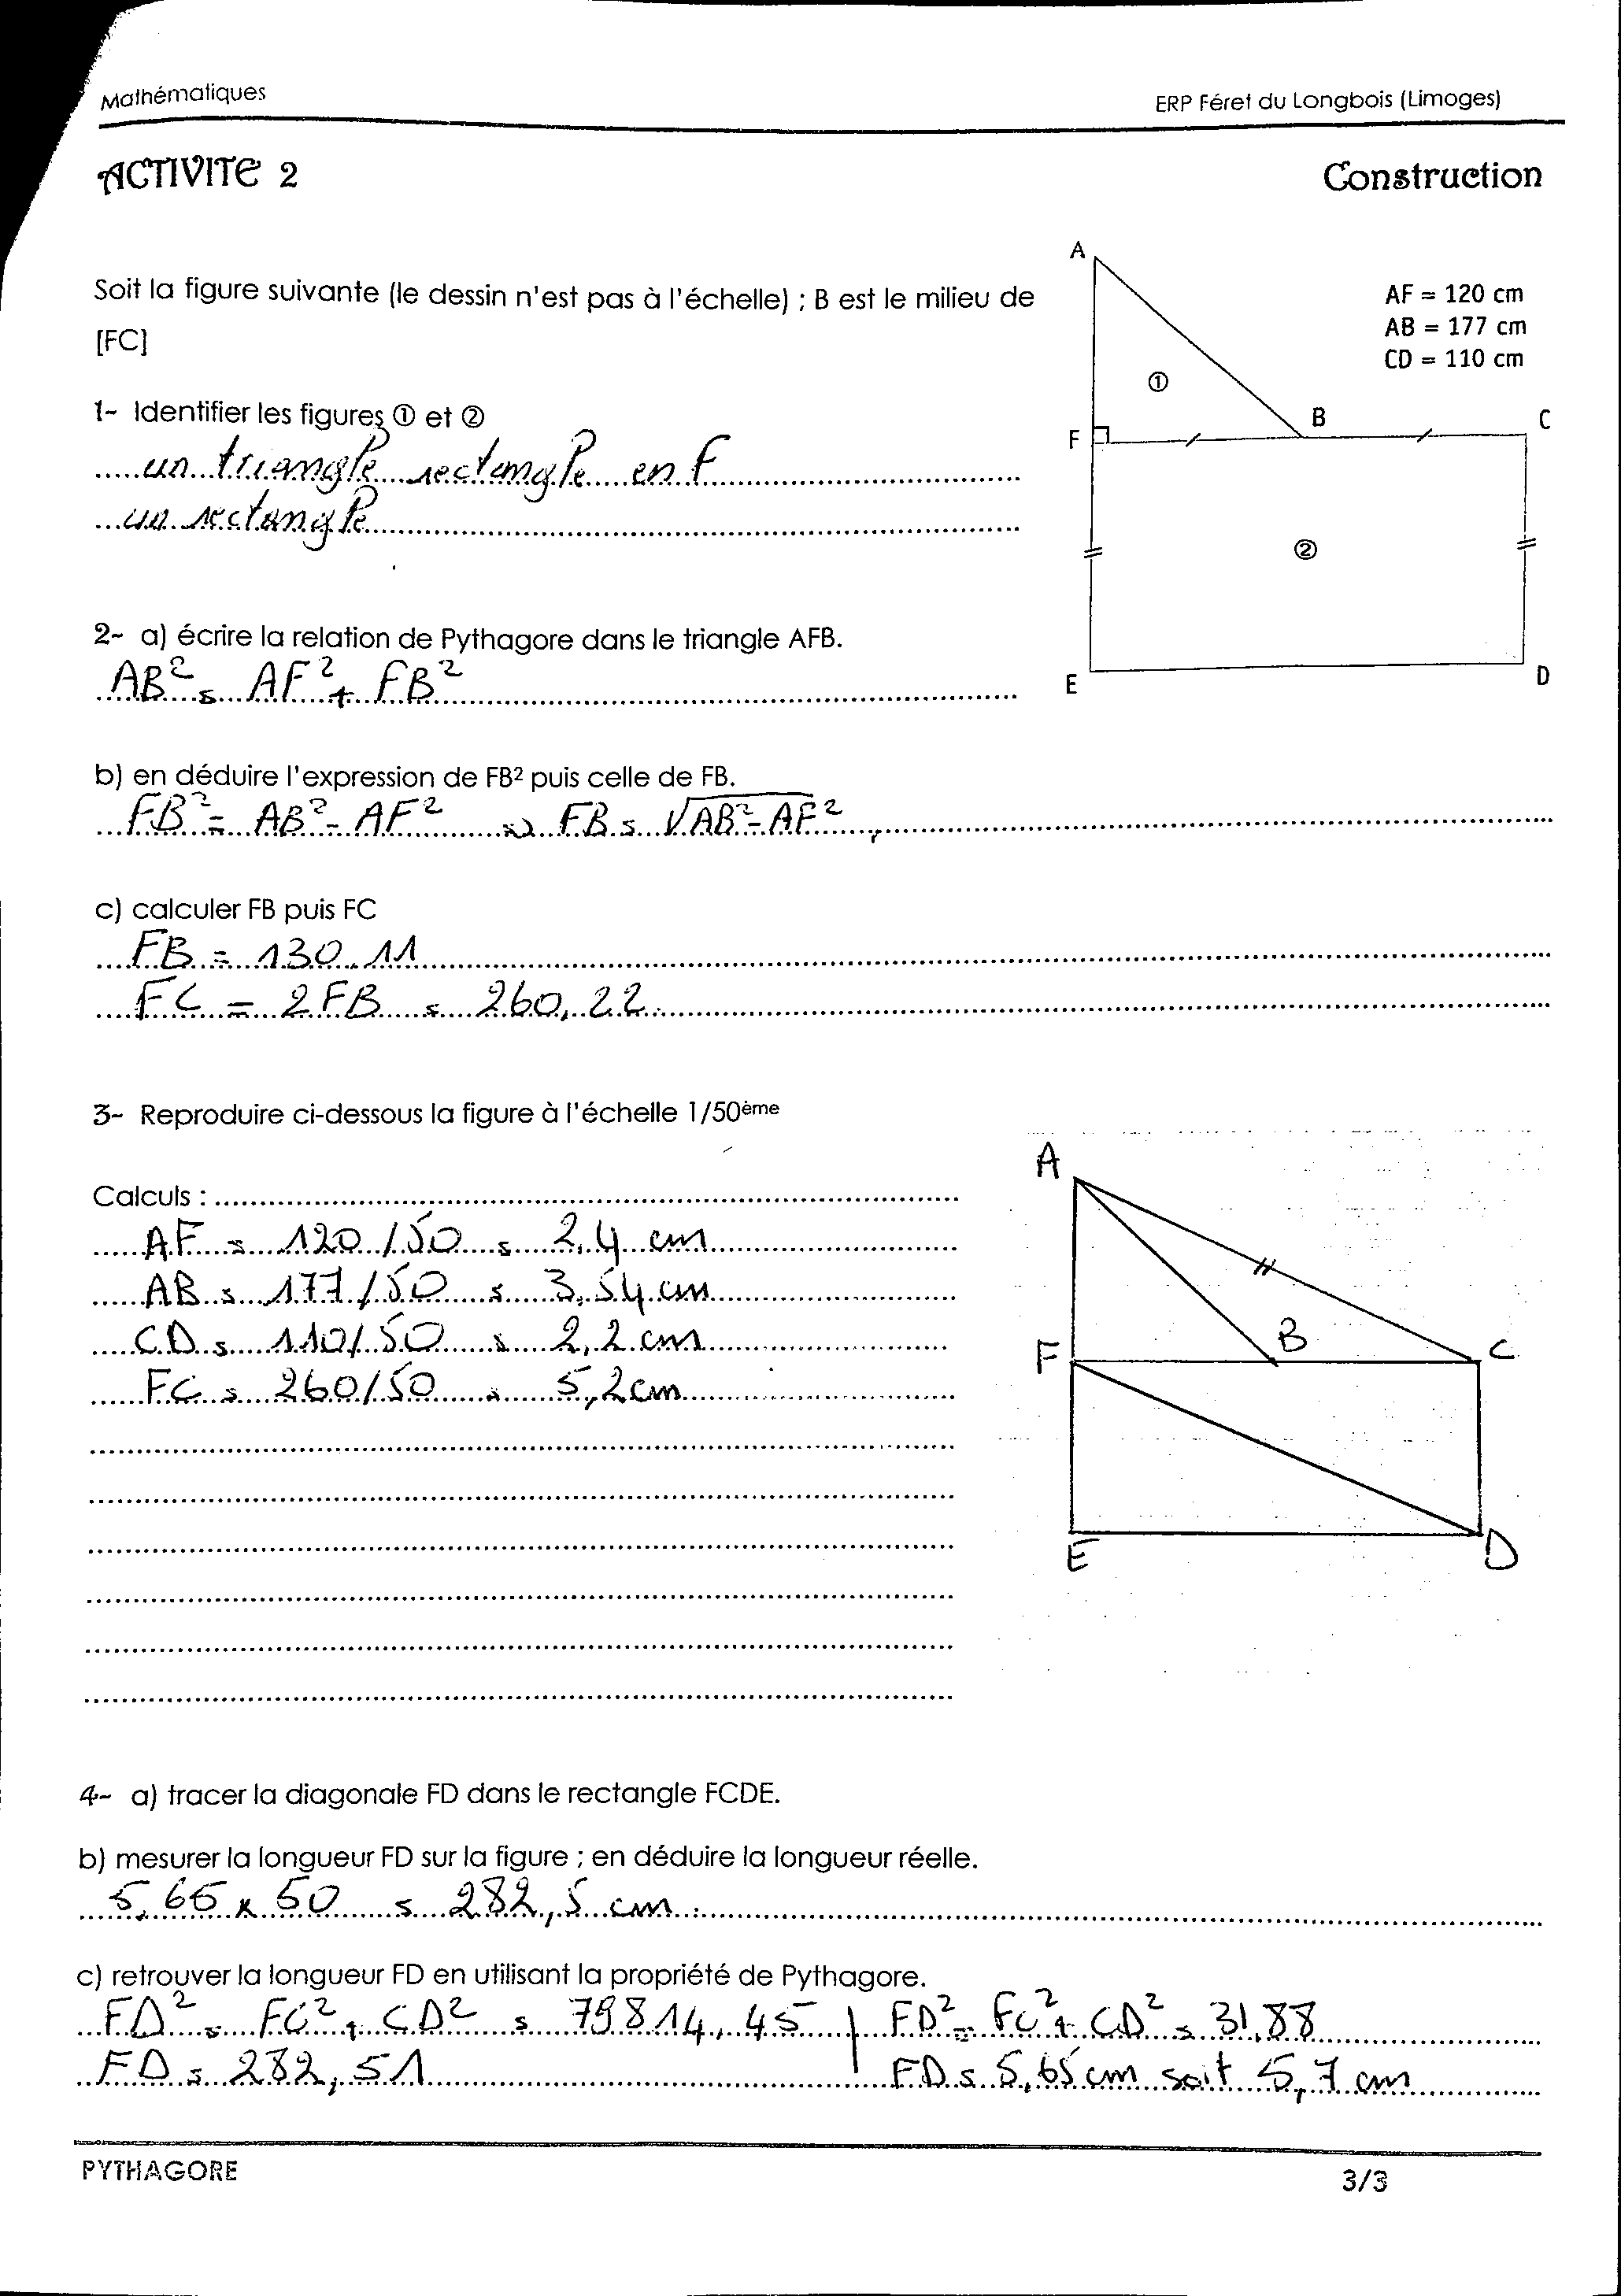 Mathématiques
ERP Féret du Longbois (Limoges)
ACTIVITE 2
Construction
Soit la figure suivante (le dessin n'est pas à l'échelle) ; B est le milieu de
[FC]
A
AF = 120 cm
AB = 177 cm
CD = 110 cm
①
F
B
C
②
E
D
1- Identifier les figures ① et ②
un triangle rectangle en F
un rectangle
2- a) écrire la relation de Pythagore dans le triangle AFB.
AB² = AF² + FB²
b) en déduire l'expression de FB² puis celle de FB.
FB² = AB² - AF² => FB = √AB² - AF²
c) calculer FB puis FC
FB = 130,11
FC = 2FB = 260,22
3- Reproduire ci-dessous la figure à l'échelle 1/50ème
Calculs :
AF = 120/50 = 2,4 cm
AB = 177/50 = 3,54 cm
CD = 110/50 = 2,2 cm
FC = 260/50 = 5,2 cm
A
F
B
C
E
D
4- a) tracer la diagonale FD dans le rectangle FCDE.
b) mesurer la longueur FD sur la figure ; en déduire la longueur réelle.
5,65 x 50 = 282,5 cm
c) retrouver la longueur FD en utilisant la propriété de Pythagore.
FD² = FC² + CD² = 79814,45 | FD² = FC² + CD² = 31,88
FD = 282,51 | FD = 5,65 cm soit 5,7 cm
PYTHAGORE
3/3